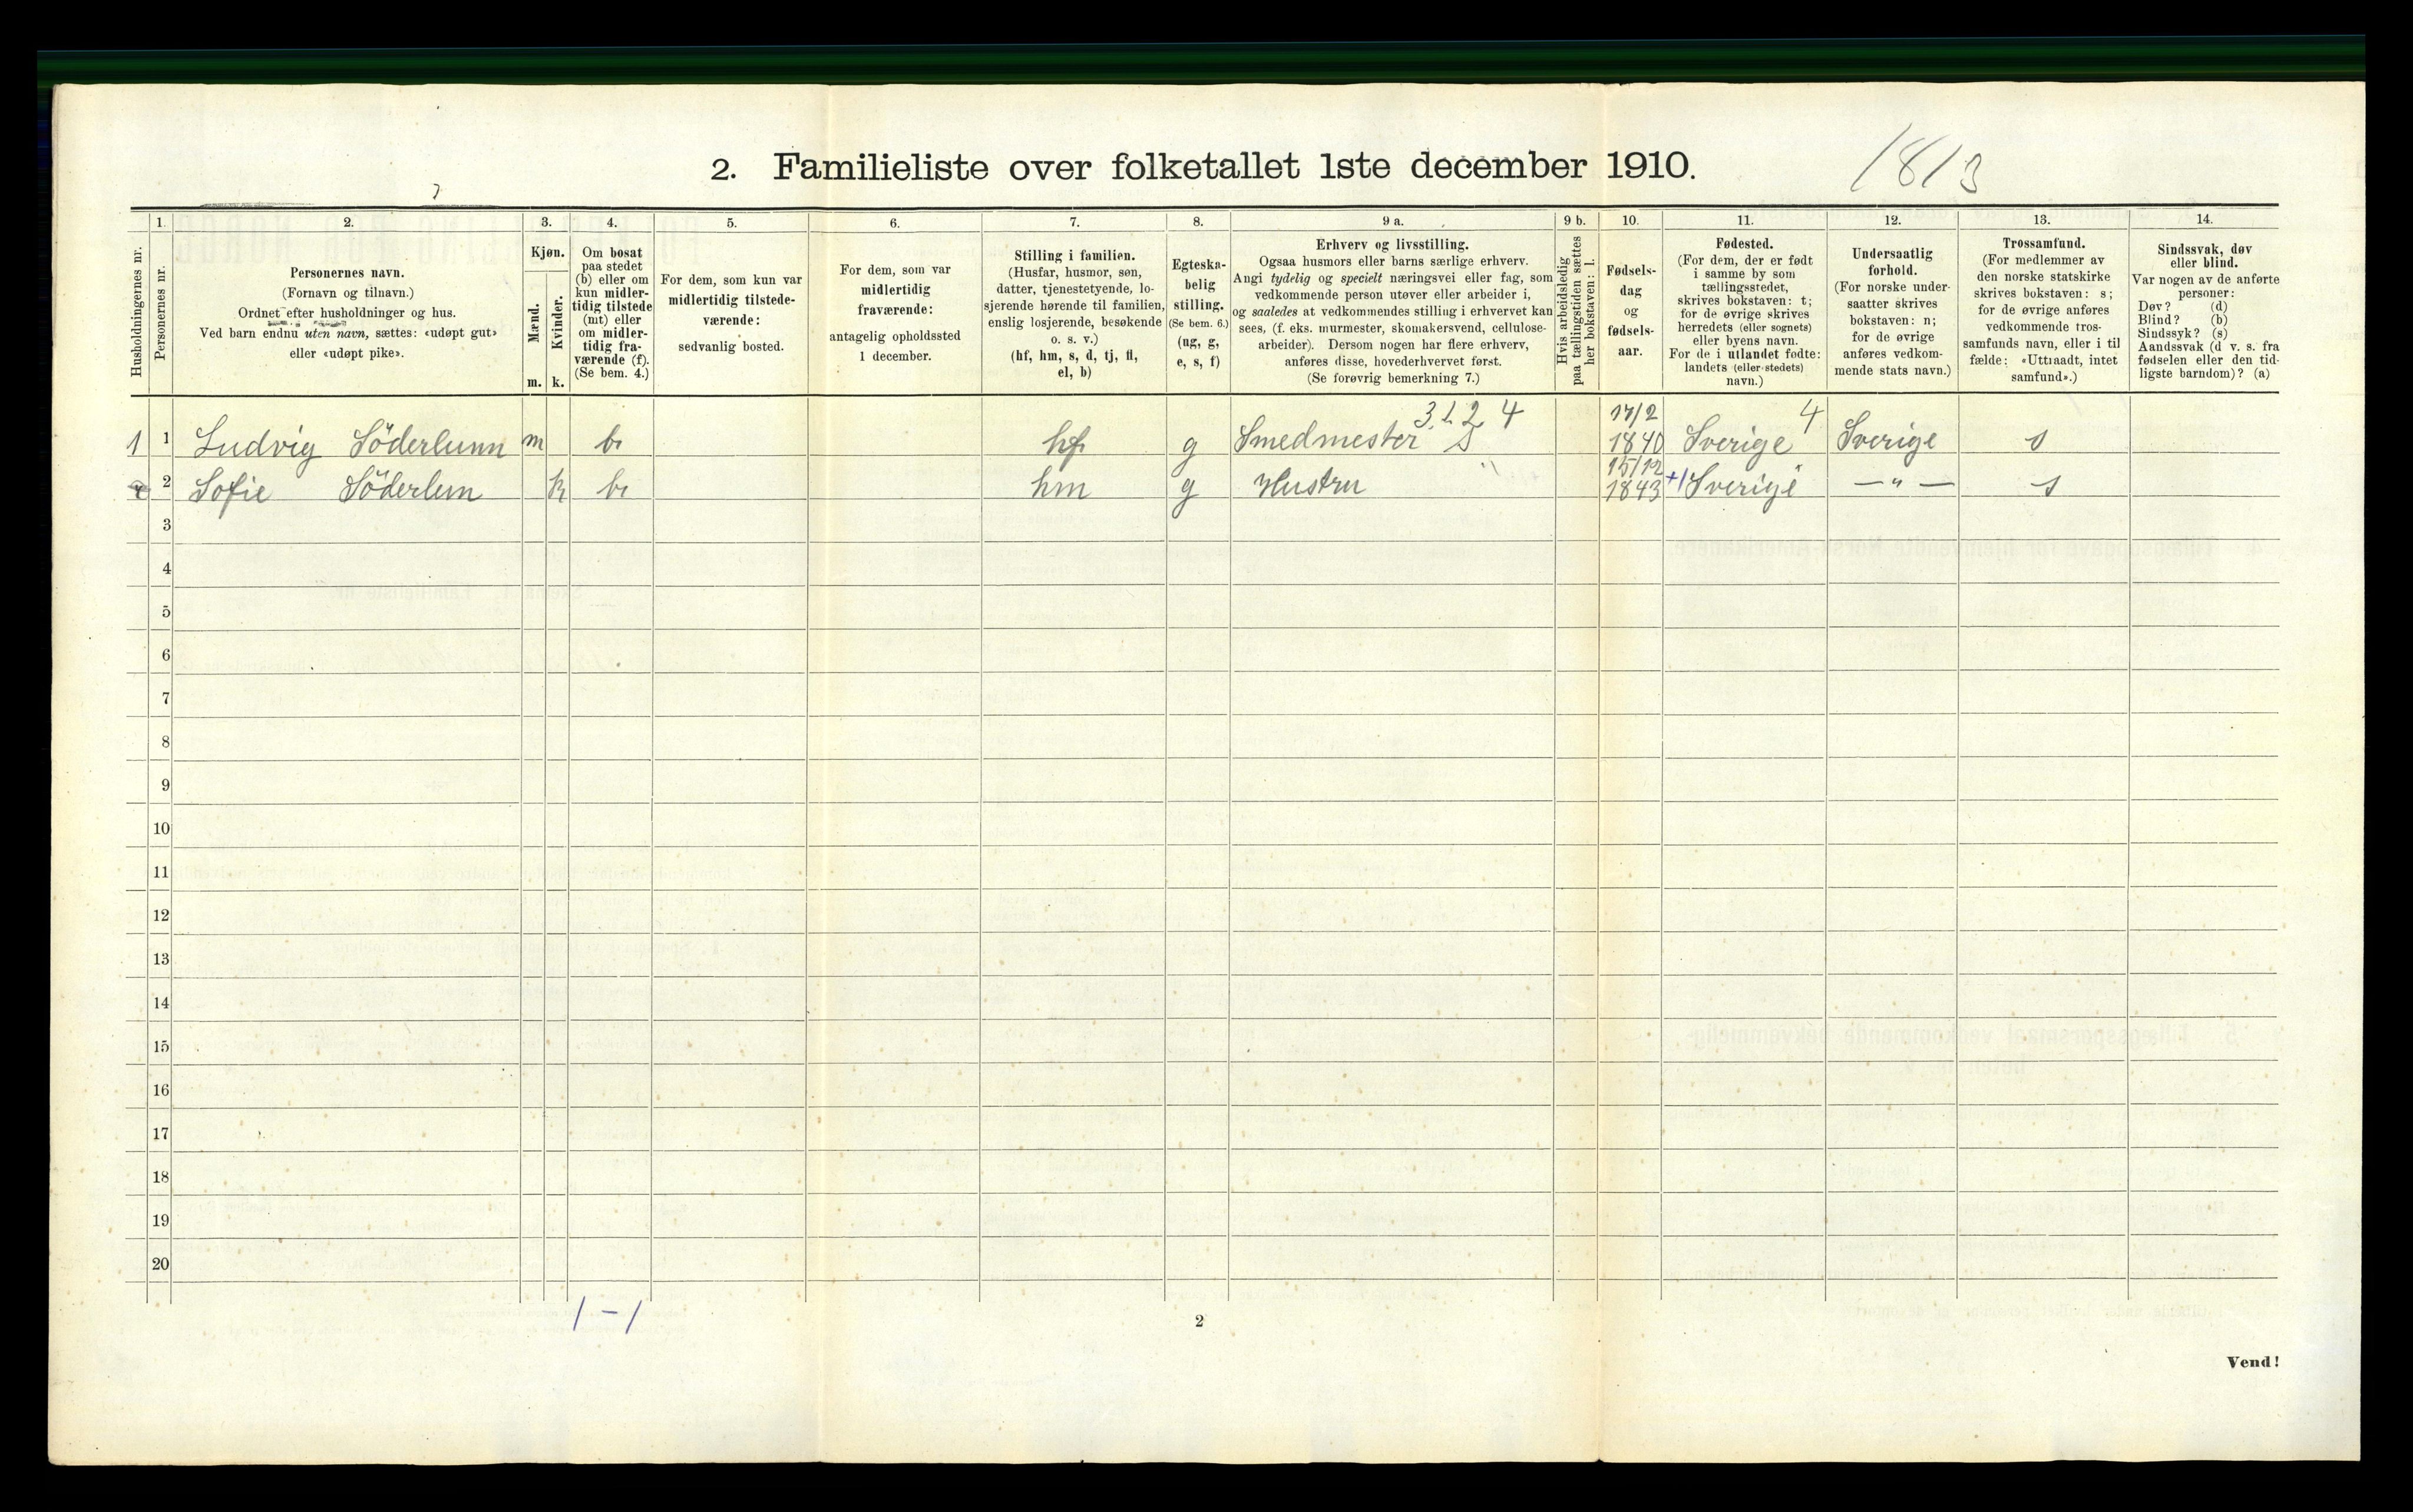 2. Familieliste over folketallet 1ste december 1910.
1813
1. 2. 3. 4. 5. 6. 7. 8. 9 a. 9 b. 10. 11. 12. 13. 14.
Husholdningernes nr.
Personernes nr.
Personernes navn.
(Fornavn og tilnavn.)
Ordnet efter husholdninger og hus.
Ved barn endnu uten navn, sættes: «udøpt gut»
eller «udøpt pike».
Kjøn.
Mænd.
Kvinder.
m. k.
Om bosat
paa stedet
(b) eller om
kun midler-
tidig tilstede
(mt) eller
om midler-
tidig fra-
værende (f).
(Se bem. 4.)
For dem, som kun var
midlertidig tilstede-
værende:
sedvanlig bosted.
For dem, som var
midlertidig
fraværende:
antagelig opholdssted
1 december.
Stilling i familien.
(Husfar, husmor, søn,
datter, tjenestetyende, lo-
sjerende hørende til familien,
enslig losjerende, besøkende
o. s. v.)
(hf, hm, s, d, tj, fl,
el, b)
Egteska-
belig
stilling.
(Se bem. 6.)
(ug, g,
e, s, f)
Erhverv og livsstilling.
Ogsaa husmors eller barns særlige erhverv.
Angi tydelig og specielt næringsvei eller fag, som
vedkommende person utøver eller arbeider i,
og saaledes at vedkommendes stilling i erhvervet kan
sees, (f. eks. murmester, skomakersvend, cellulose-
arbeider). Dersom nogen har flere erhverv,
anføres disse, hovederhvervet først.
(Se forøvrig bemerkning 7.)
Hvis arbeidsledig
paa tællingstiden sættes
her bokstaven: l.
Fødsels-
dag
og
fødsels-
aar.
Fødested.
(For dem, der er født
i samme by som
tællingsstedet,
skrives bokstaven: t;
for de øvrige skrives
herredets (eller sognets)
eller byens navn.
For de i utlandet fødte:
landets (eller stedets)
navn.)
Undersaatlig
forhold.
(For norske under-
saatter skrives
bokstaven: n;
for de øvrige
anføres vedkom-
mende stats navn.)
Trossamfund.
(For medlemmer av
den norske statskirke
skrives bokstaven: s;
for de øvrige anføres
vedkommende tros-
samfunds navn, eller i til
fælde: «Uttraadt, intet
samfund».)
Sindssvak, døv
eller blind.
Var nogen av de anførte
personer:
Døv? (d)
Blind? (b)
Sindssyk? (s)
Aandssvak (d v. s. fra
fødselen eller den tid-
ligste barndom)? (a)
3.1.2 4 17/2 4
1 1 Ludvig Söderlunn m b. hf g Smedmester S 1840 Sverige Sverige s
15/12
2 Sofie Söderlun k b. hm g Hustru 1843 +1 Sverige — " — s
3
4
5
6
7
8
9
10
11
12
13
14
15
16
17
18
19
20
1 - 1
2
Vend!